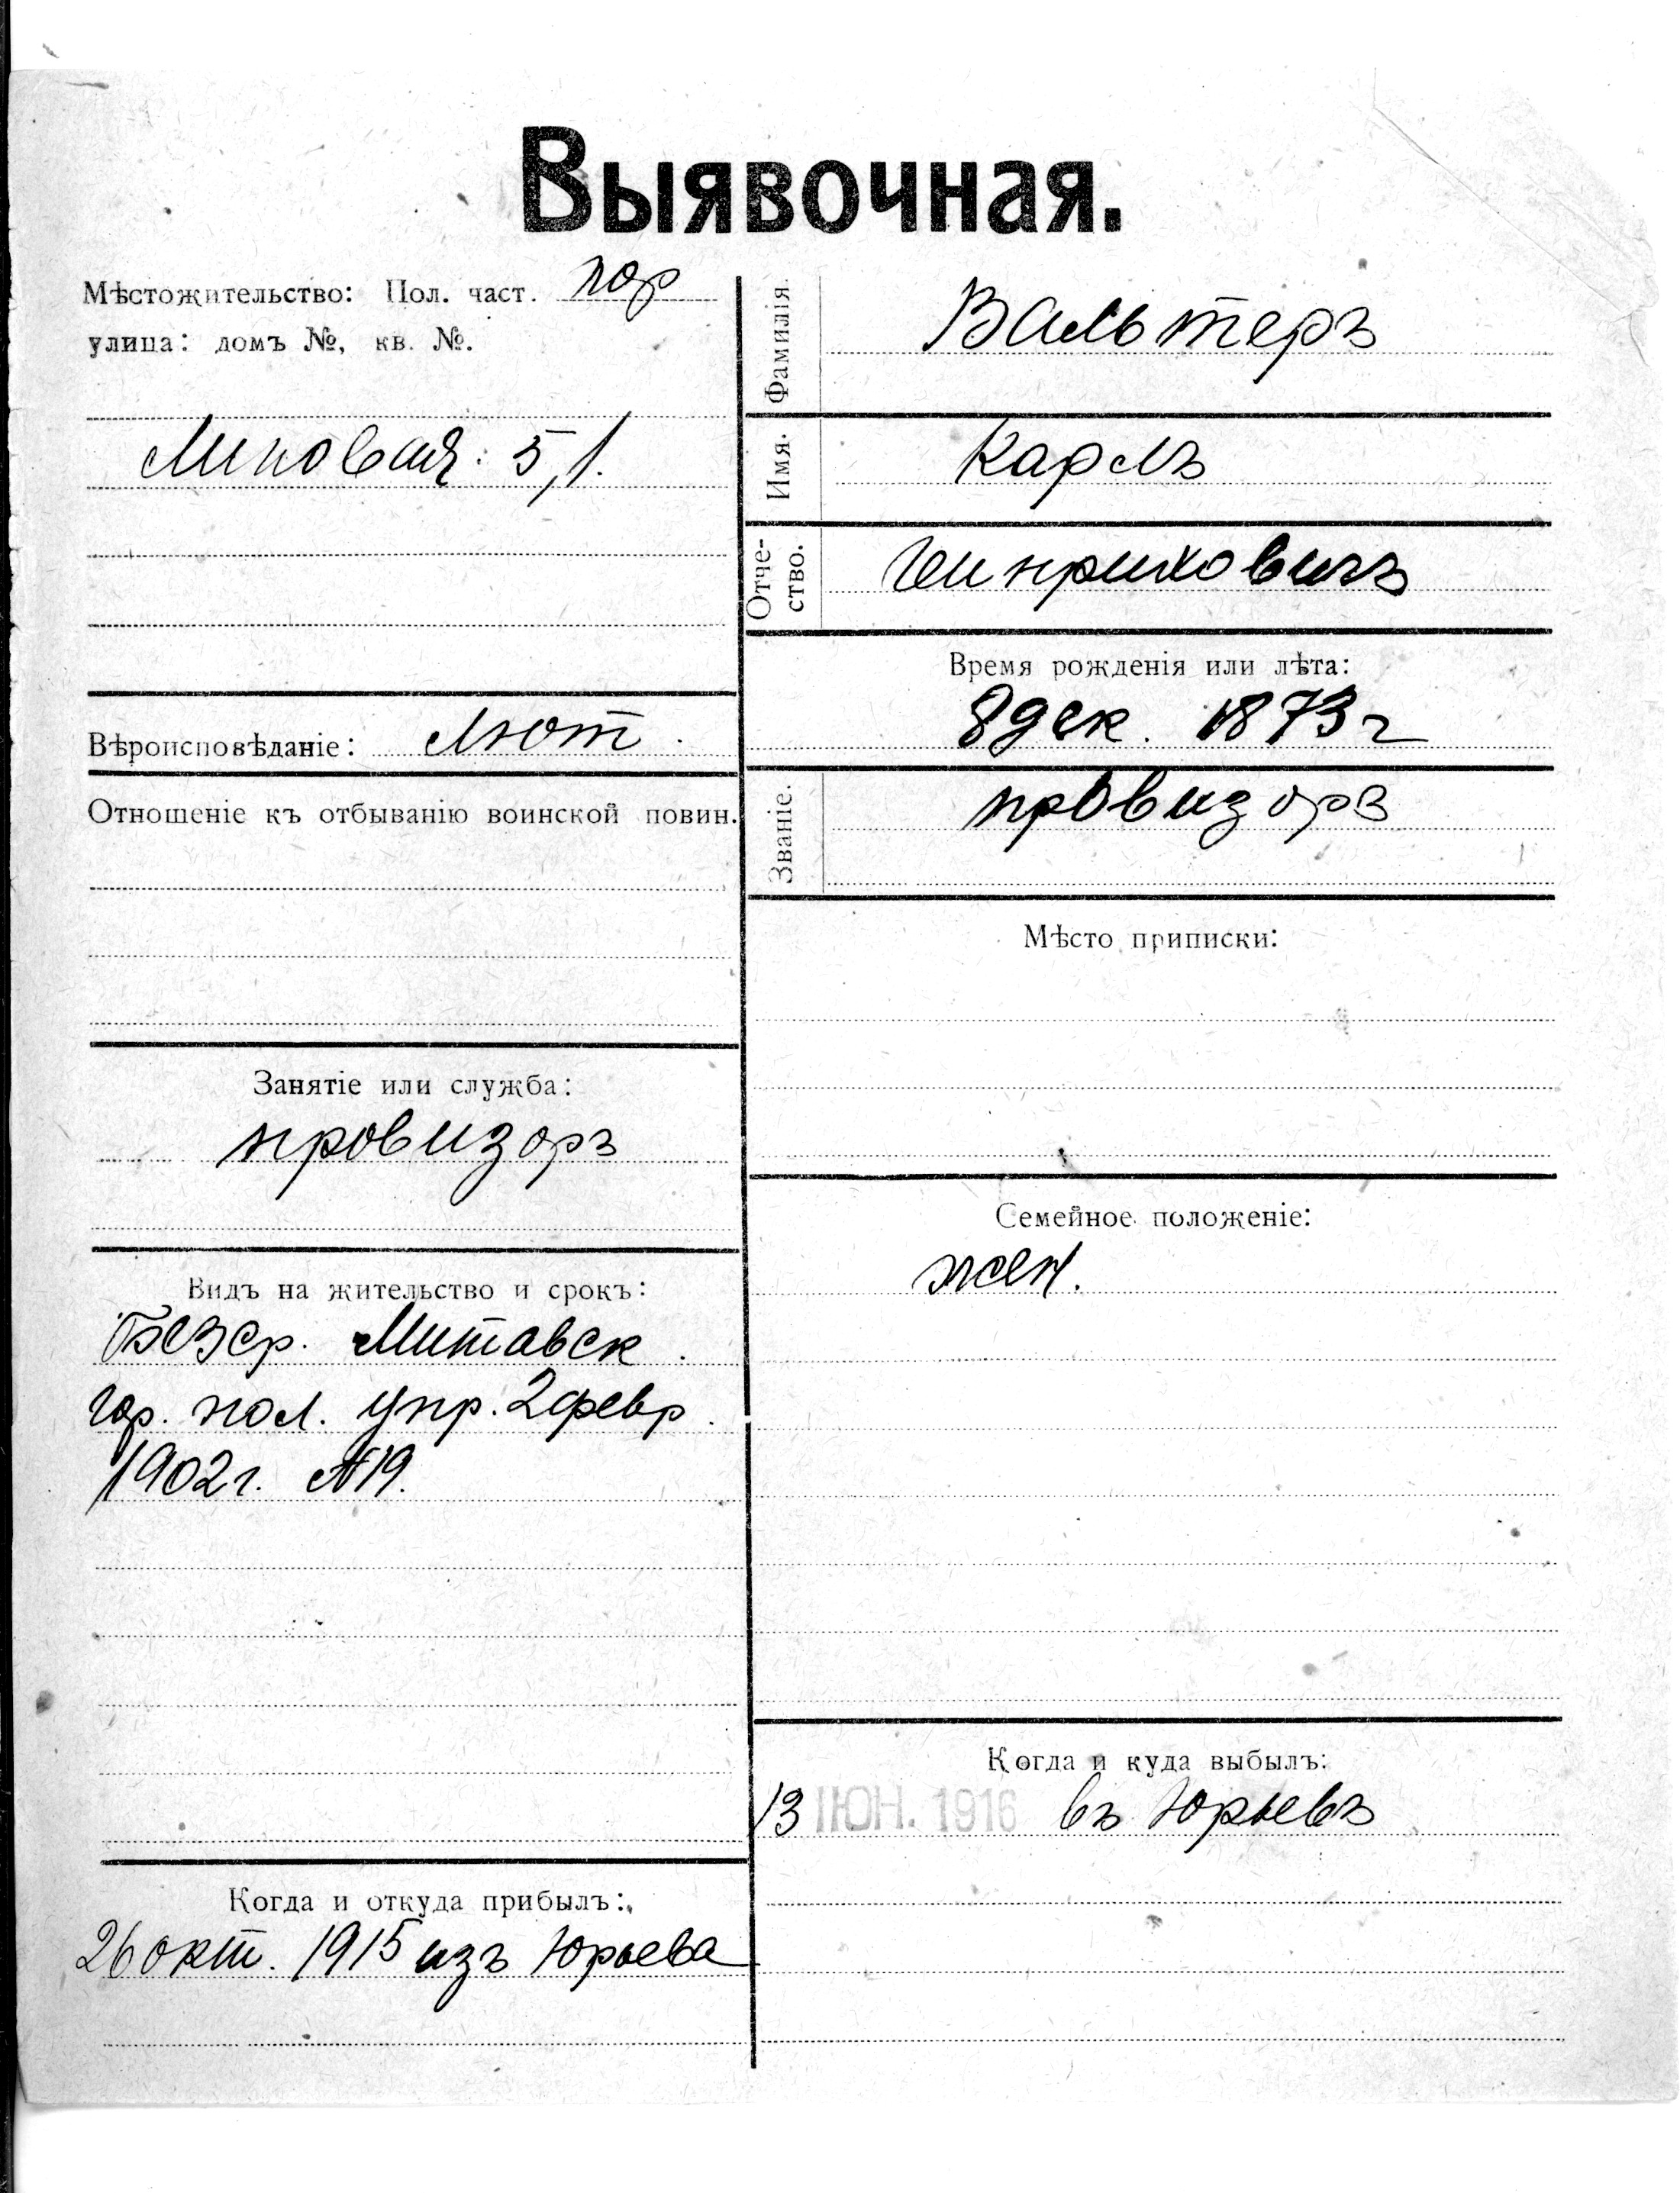 Выявочная.
Мѣстожительство: Пол. част. пор
улица: домъ №, кв. №.
Липовая: 5,1.
Вѣроисповѣданіе: Лют.
Отношеніе къ отбыванію воинской повин.
Занятіе или служба:
провизоръ
Видъ на жительство и срокъ:
Безср. Митавск.
гор. пол. упр. 2 февр.
1902 г. №19.
Когда и откуда прибылъ:
26 окт. 1915 изъ Юрьева
Фамилія. Вальтеръ
Имя. Карлъ
Отче-
ство. Гинриховичъ
Время рожденія или лѣта:
8 дек. 1873 г
Званіе. провизоръ
Мѣсто приписки:
Семейное положеніе:
жен.
Когда и куда выбылъ:
13 ІЮН. 1916 въ Юрьевъ